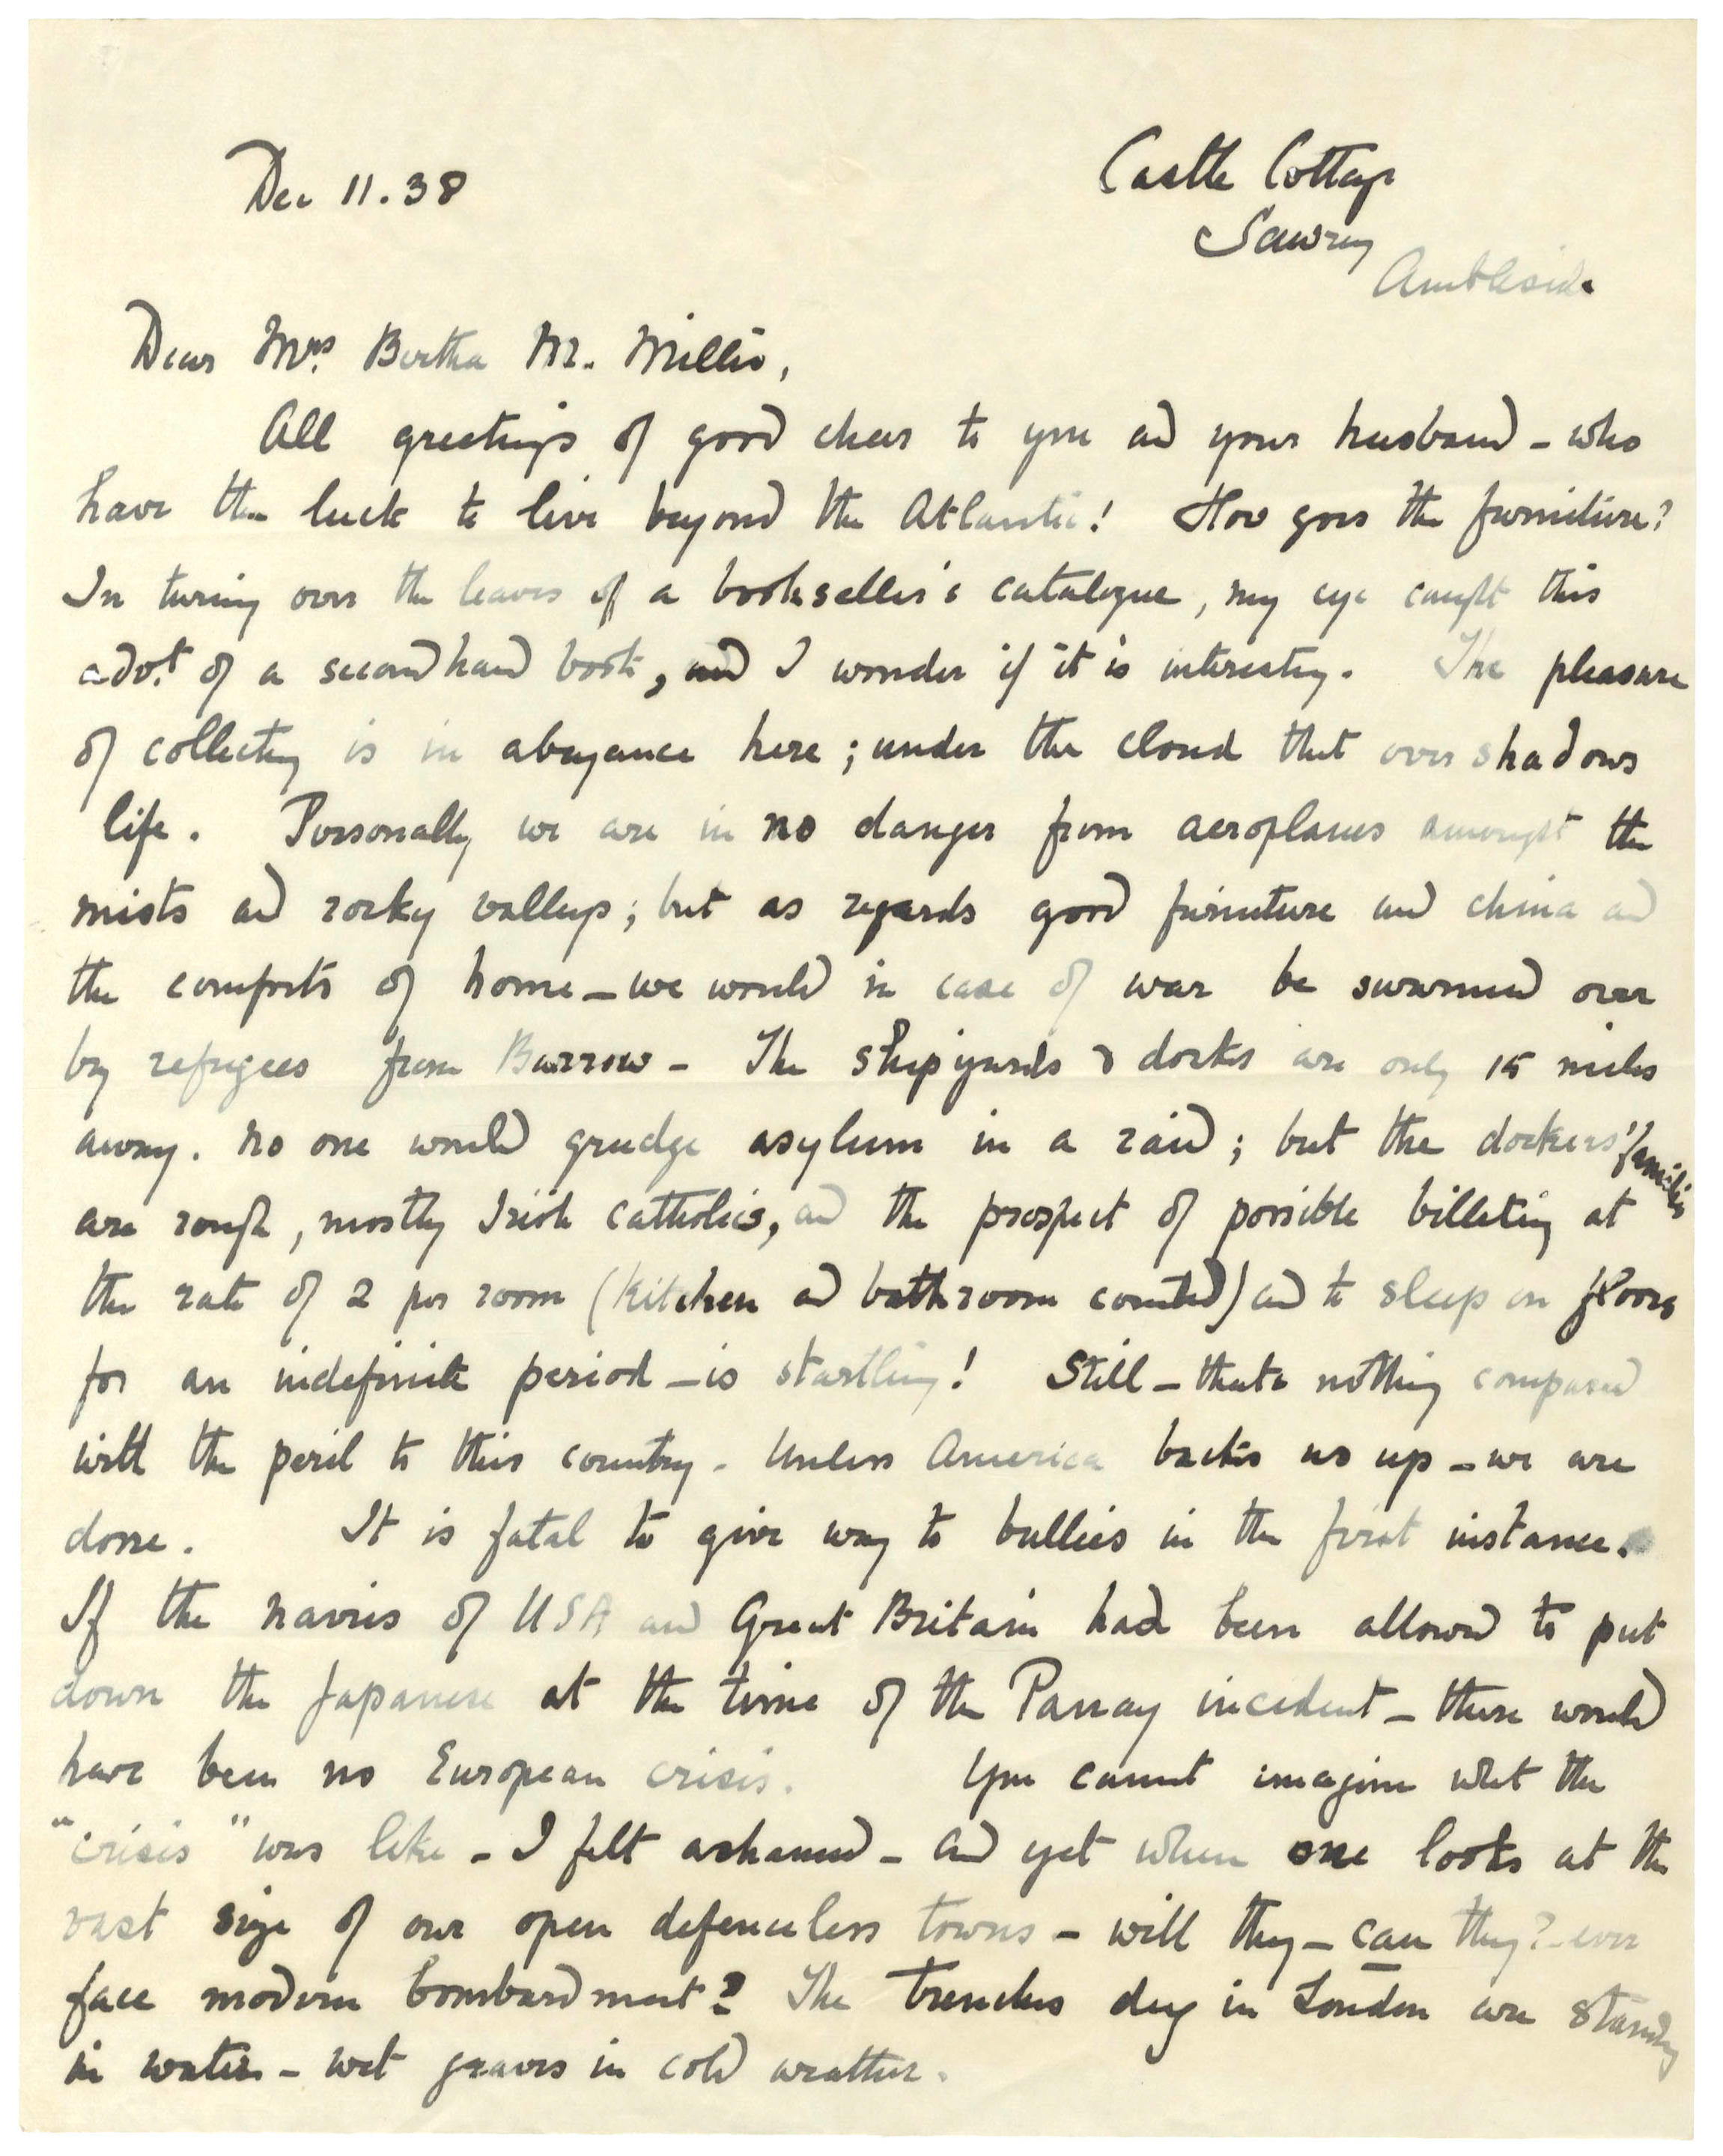 Dec 11.38
Castle Cottage
Sawrey
Ambleside
Dear Mrs. Bertha M. Miller,
All greetings of good cheer to you and your husband – who
have the luck to live beyond the Atlantic! How goes the furniture?
In turning over the leaves of a bookseller's catalogue, my eye caught this
advt. of a secondhand book, and I wonder if it is interesting. The pleasure
of collecting is in abeyance here; under the cloud that over shadows
life. Personally we are in no danger from aeroplanes amongst the
mists and rocky valleys; but as regards good furniture and china and
the comforts of home – we would in case of war be swarmed over
by refugees from Barrow – The shipyards & docks are only 15 miles
away. No one would grudge asylum in a raid; but the dockers' families
are rough, mostly Irish catholics, and the prospect of possible billeting at
the rate of 2 per room (kitchen and bathroom counted) and to sleep on floors
for an indefinite period – is startling! Still – thats nothing compared
with the peril to this country. Unless America backs us up – we are
done. It is fatal to give way to bullies in the first instance.
If the navies of USA and Great Britain had been allowed to put
down the Japanese at the time of the Panay incident – there would
have been no European crisis. You cannot imagine what the
"crisis" was like – I felt ashamed – and yet when one looks at the
vast size of our open defenceless towns – will they – can they? – ever
face modern bombardment? The trenches dug in London are standing
in water – wet graves in cold weather.